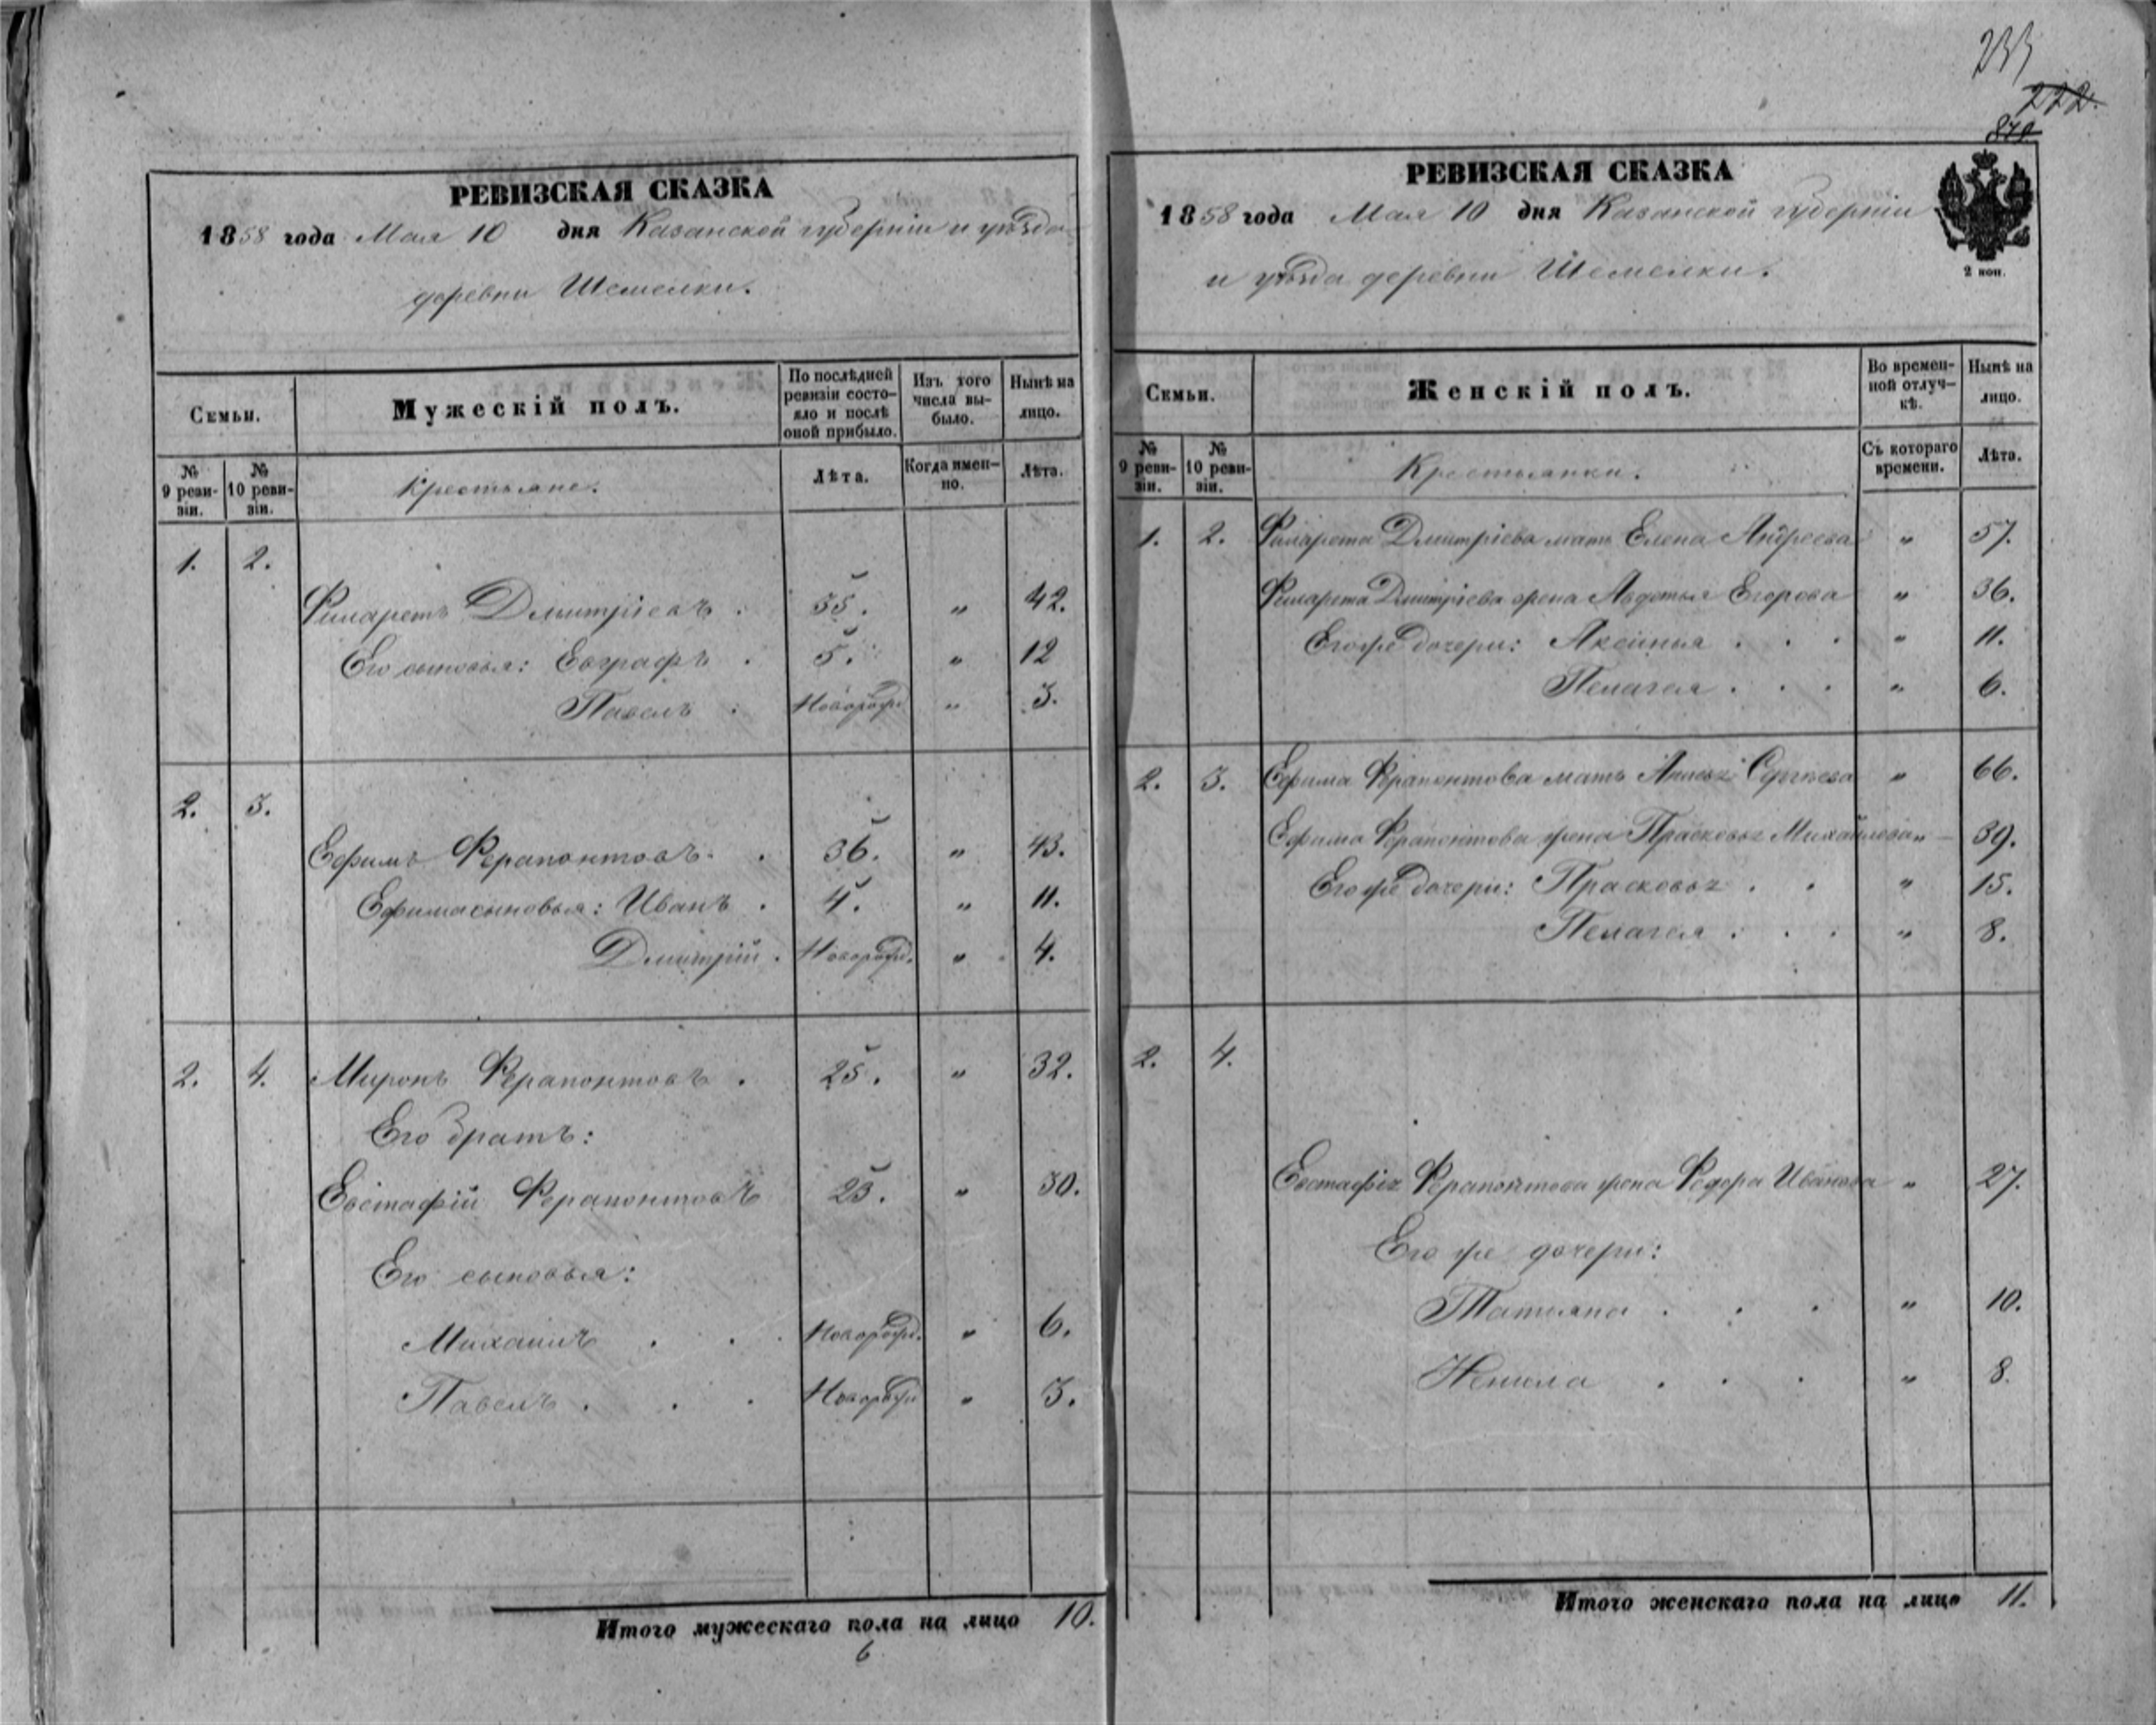 233
222.
870
РЕВИЗСКАЯ СКАЗКА
1858 года Мая 10 дня Казанской губерніи и уѣзда
деревни Шемелки.
Семьи.
Мужескій полъ.
По послѣдней ревизіи состояло и послѣ оной прибыло.
Изъ того числа выбыло.
Нынѣ на лицо.
№ 9 ревизіи.
№ 10 ревизіи.
Крестьяне.
Лѣта.
Когда именно.
Лѣта.
1. 2.
Филаретъ Дмитріевъ . 35. " 42.
Его сыновья: Евграфъ . 5. " 12
Павелъ . Новорожд " 3.
2. 3.
Ефимъ Ферапонтовъ . 36. " 43.
Ефима сыновья: Иванъ . 4. " 11.
Дмитрій . Новорожд. " 4.
2. 4. Миронъ Ферапонтовъ . 25. " 32.
Его братъ:
Евстафій Ферапонтовъ 23. " 30.
Его сыновья:
Михаилъ . . . Новорожд. " 6.
Павелъ . . . Новорожд " 3.
Итого мужескаго пола на лицо 10.
6
РЕВИЗСКАЯ СКАЗКА
1858 года Мая 10 дня Казанской губерніи
и уѣзда деревни Шемелки.
2 коп.
Семьи.
Женскій полъ.
Во временной отлучкѣ.
Нынѣ на лицо.
№ 9 ревизіи.
№ 10 ревизіи.
Крестьянки.
Съ котораго времени.
Лѣта.
1. 2. Филарета Дмитріева мать Елена Андреева " 57.
Филарета Дмитріева жена Авдотья Егорова " 36.
Его же дочери: Аксинья . . . " 11.
Пелагея . . . " 6.
2. 3. Ефима Ферапонтова мать Сергѣева " 66.
Ефима Ферапонтова жена Прасковья Михайлова " 39.
Его же дочери: Прасковья . . " 15.
Пелагея . . . " 8.
2. 4.
Евстафія Ферапонтова жена Федора Иванова " 27.
Его же дочери:
Татьяна . . . " 10.
Ненила . . . " 8.
Итого женскаго пола на лицо 11.